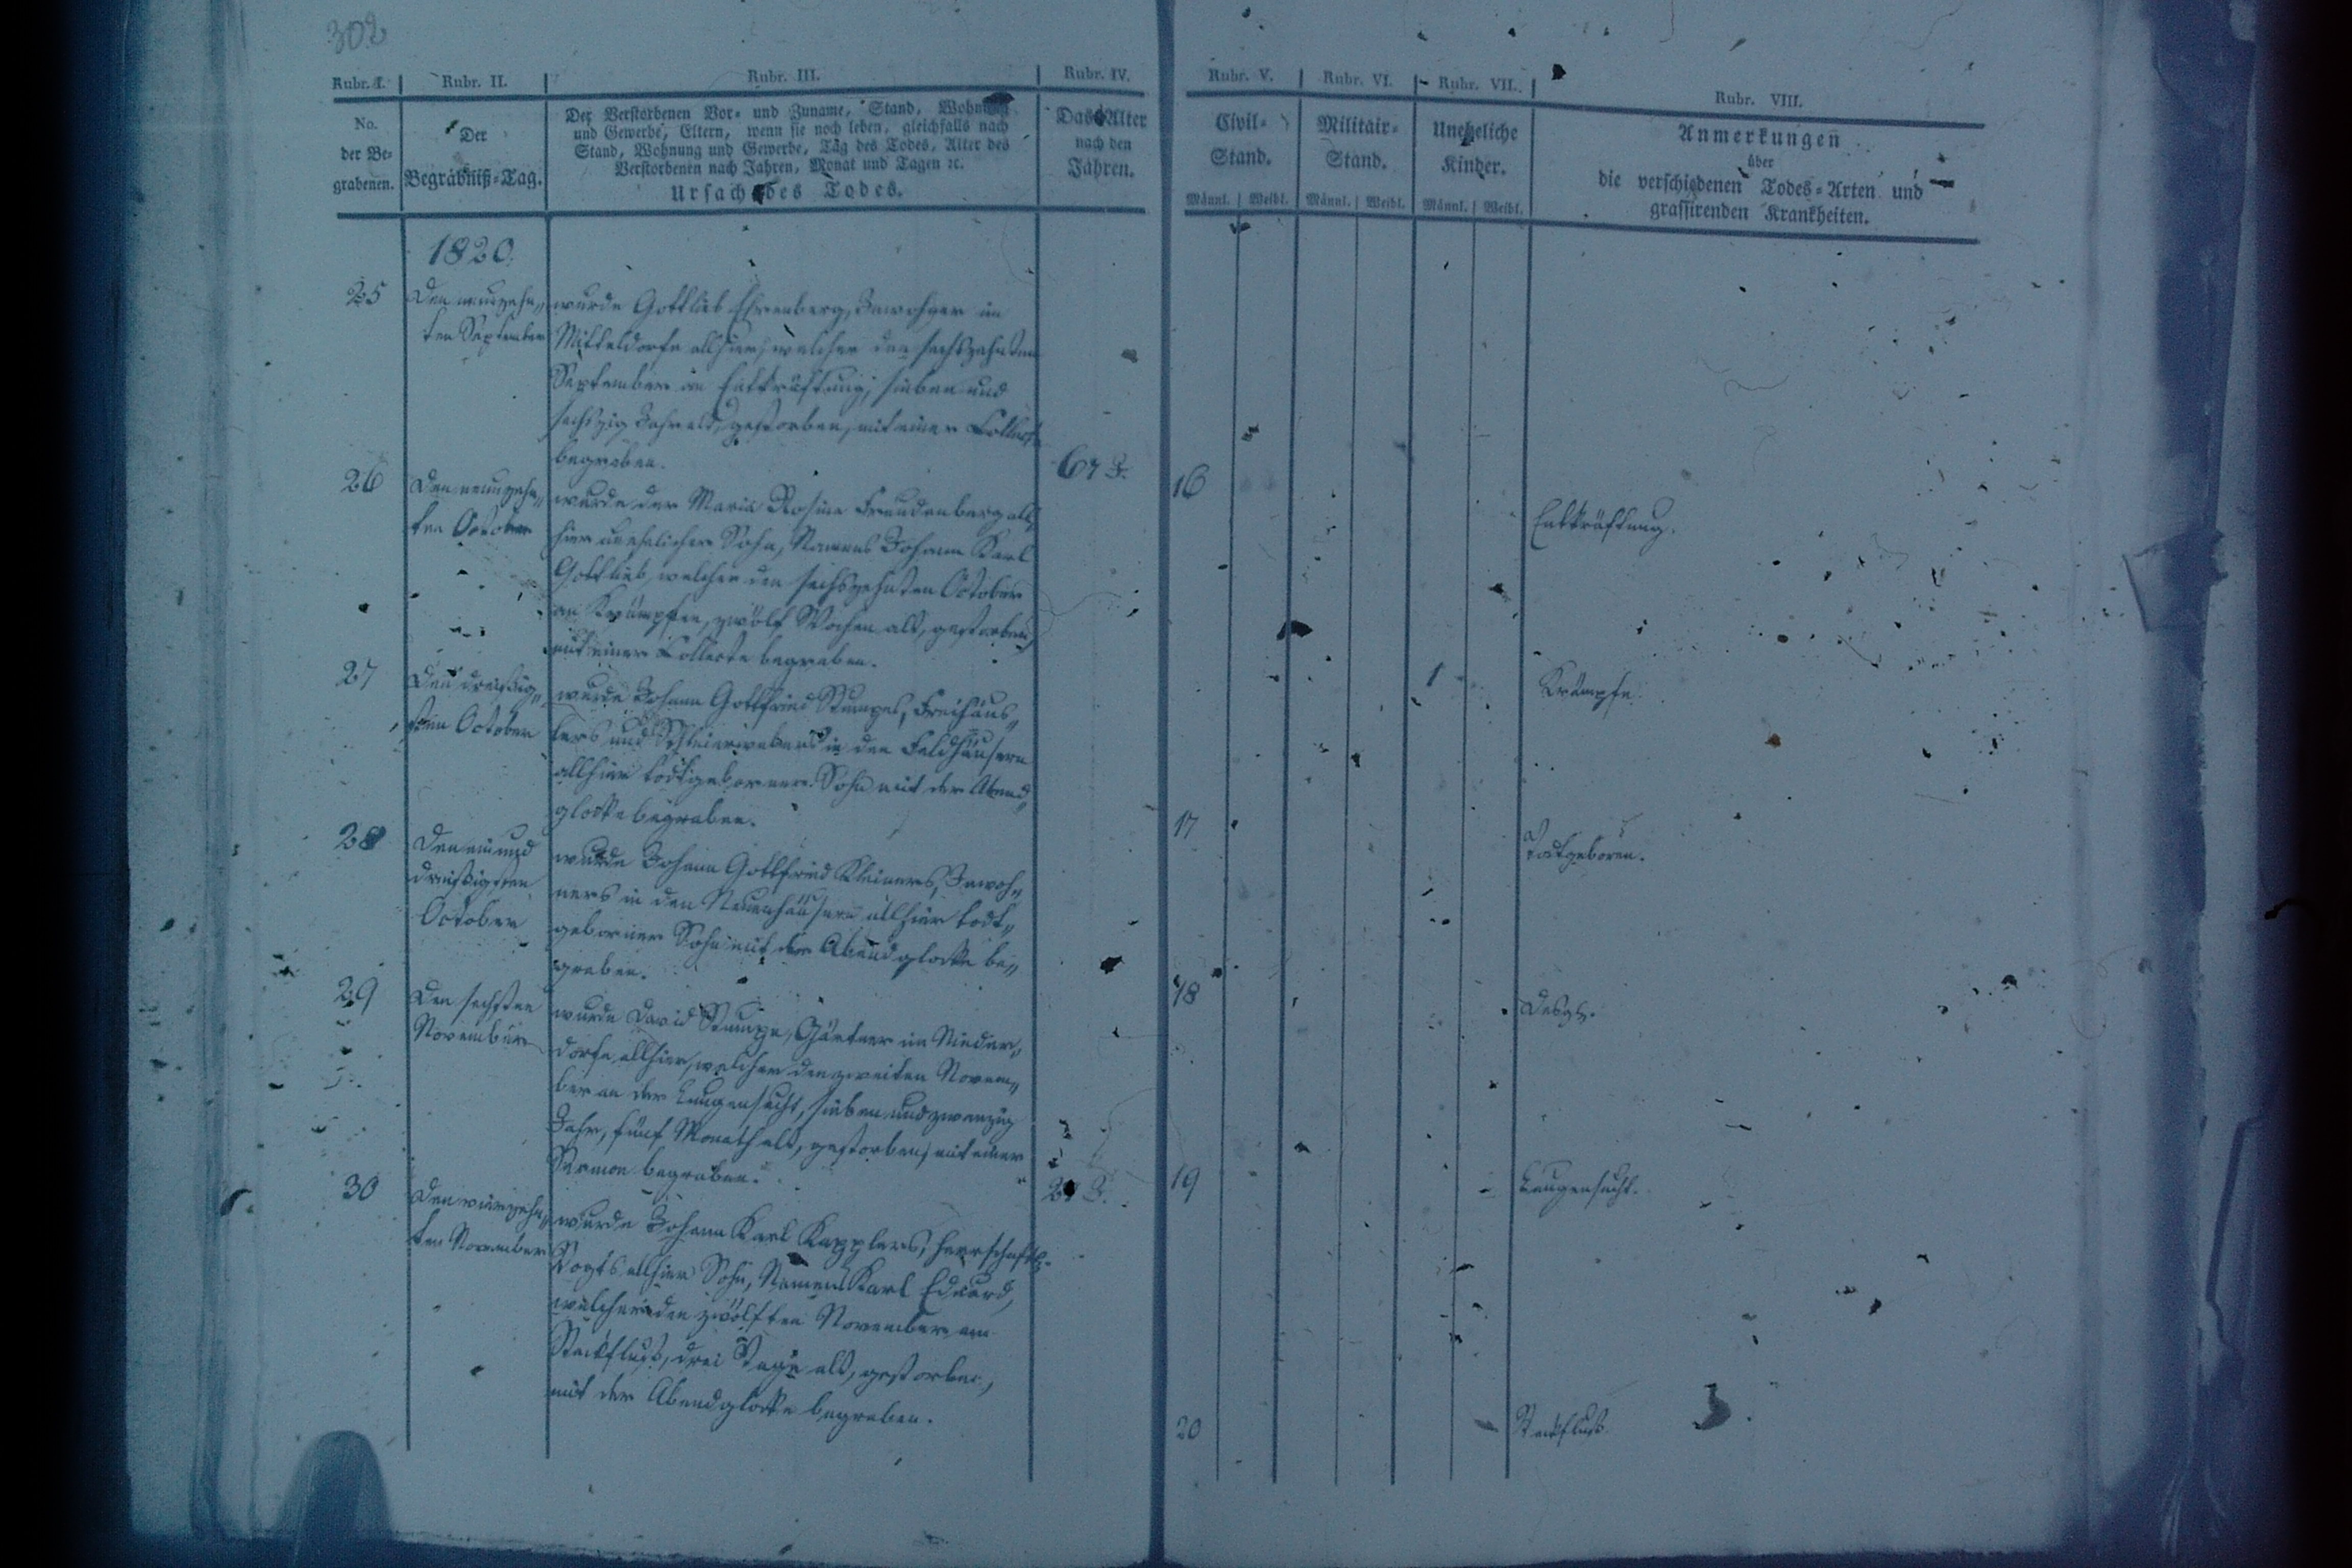 302
Rubr. I. Rubr. II. Rubr. III. Rubr. IV. Rubr. V. Rubr. VI. Rubr. VII. Rubr. VIII.
No. der Begrabenen.
Der Begräbniß-Tag.
Der Verstorbenen Vor- und Zuname, Stand, Wohnung
und Gewerbe, Eltern, wenn sie noch leben, gleichfalls nach
Stand, Wohnung und Gewerbe, Tag des Todes, Alter des
Verstorbenen nach Jahren, Monat und Tagen ꝛc.
Ursach des Todes.
Das Alter
nach den
Jahren.
Civil-
Stand.
Männl. Weibl.
Militair-
Stand.
Männl. Weibl.
Uneheliche
Kinder.
Männl. Weibl.
Anmerkungen
über
die verschiedenen Todes-Arten und
grassirenden Krankheiten.
1820.
25
Den neunzehn-
ten September
wurde Gottlieb Ehrenberg, Inwohner im
Mitteldorfe allhier, welcher den sechszehnten
September an Entkräftung, sieben und
sechszig Jahr alt, gestorben, mit einer Collecte
begraben.
67 J.
16
Entkräftung.
26
Den neunzehn-
ten October
wurde der Maria Rosina Freudenberg all-
hier unehelicher Sohn, Namens Johann Karl
Gottlieb, welcher den sechszehnten October
an Krämpfen, zwölf Wochen alt, gestorben,
mit einer Collecte begraben.
1
Krämpfe.
27
Den dreißig-
sten October
wurde Johann Gottfried Stumpes, Freihäus-
lers und Schleierwebers in den Feldhäusern
allhier todtgeborner Sohn mit der Abend-
glocke begraben.
17
Todtgeboren.
28
Den ein und
dreißigsten
October
wurde Johann Gottfried Kleiners, Inwoh-
ners in den Neuenhäusern allhier todt-
geborner Sohn mit der Abendglocke be-
graben.
18
Desgl.
29
Den sechsten
November
wurde David Stumpe, Gärtner im Nieder-
dorfe allhier, welcher den zweiten Novem-
ber an der Lungensucht, sieben und zwanzig
Jahr, fünf Monath alt, gestorben, mit einer
Sermon begraben.
27 J.
19
Lungensucht.
30
Den vierzehn-
ten November
wurde Johann Karl Kapplers, herrschaftl.
Vogts allhier Sohn, Namens Karl Eduard,
welcher den zwölften November am
Steckfluß, drei Tage alt, gestorben,
mit der Abendglocke begraben.
20
Steckfluß